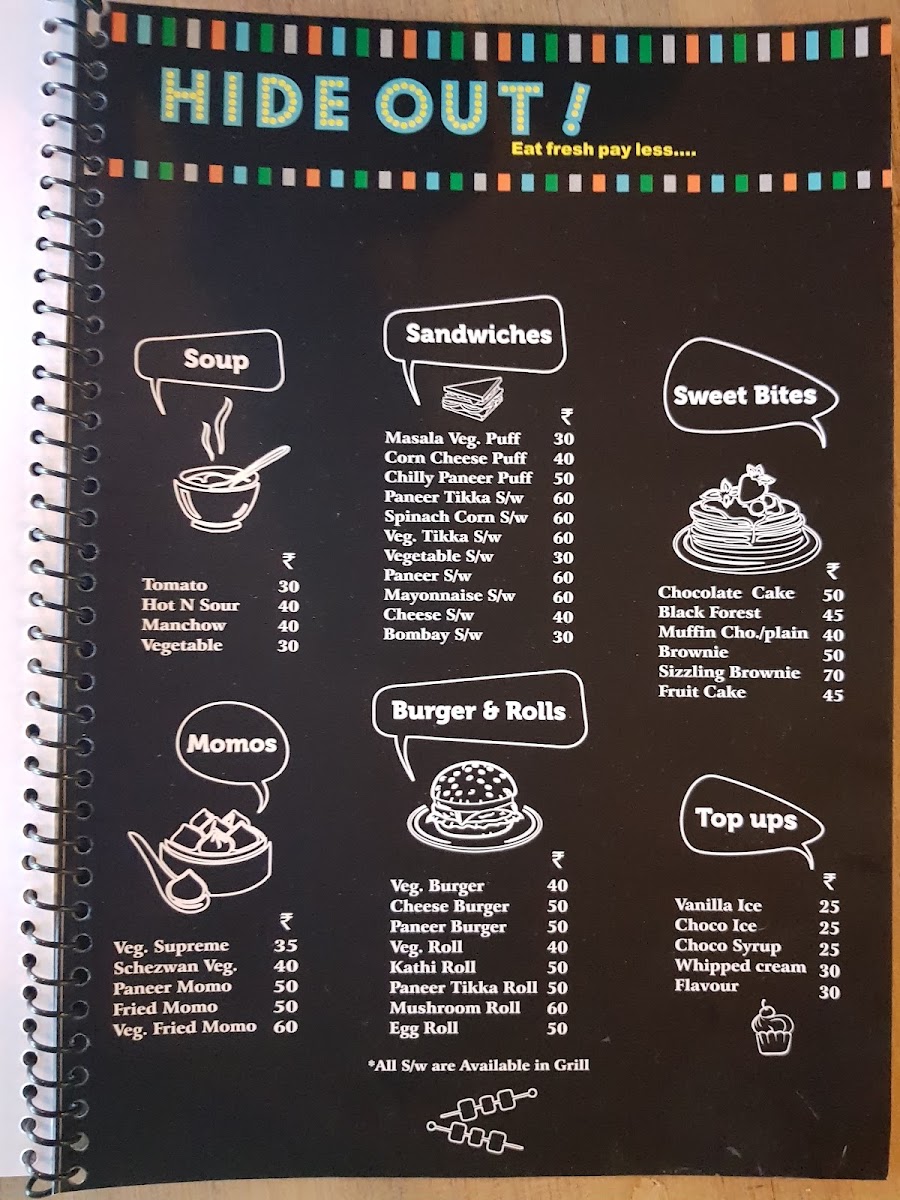 HIDE OUT!
Eat fresh pay less....
Soup
₹
Tomato 30
Hot N Sour 40
Manchow 40
Vegetable 30
Sandwiches
₹
Masala Veg. Puff 30
Corn Cheese Puff 40
Chilly Paneer Puff 50
Paneer Tikka S/w 60
Spinach Corn S/w 60
Veg. Tikka S/w 60
Vegetable S/w 30
Paneer S/w 60
Mayonnaise S/w 60
Cheese S/w 40
Bombay S/w 30
Sweet Bites
₹
Chocolate Cake 50
Black Forest 45
Muffin Cho./plain 40
Brownie 50
Sizzling Brownie 70
Fruit Cake 45
Momos
₹
Veg. Supreme 35
Schezwan Veg. 40
Paneer Momo 50
Fried Momo 50
Veg. Fried Momo 60
Burger & Rolls
₹
Veg. Burger 40
Cheese Burger 50
Paneer Burger 50
Veg. Roll 40
Kathi Roll 50
Paneer Tikka Roll 50
Mushroom Roll 60
Egg Roll 50
*All S/w are Available in Grill
Top ups
₹
Vanilla Ice 25
Choco Ice 25
Choco Syrup 25
Whipped cream 30
Flavour 30